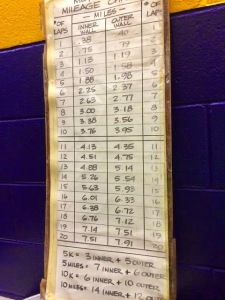 MILEAGE
# OF LAPS — MILES — # OF LAPS
INNER WALL OUTER WALL
1 .38 .40 1
2 .75 .79 2
3 1.13 1.19 3
4 1.50 1.58 4
5 1.88 1.98 5
6 2.25 2.37 6
7 2.63 2.77 7
8 3.00 3.18 8
9 3.38 3.56 9
10 3.76 3.95 10
11 4.13 4.35 11
12 4.51 4.75 12
13 4.88 5.14 13
14 5.26 5.54 14
15 5.63 5.93 15
16 6.01 6.33 16
17 6.38 6.72 17
18 6.76 7.12 18
19 7.14 7.51 19
20 7.51 7.91 20
5K = 3 INNER + 5 OUTER
5 MILES = 7 INNER + 6 OUTER
10K = 6 INNER + 10 OUTER
10 MILES = 14 INNER + 12